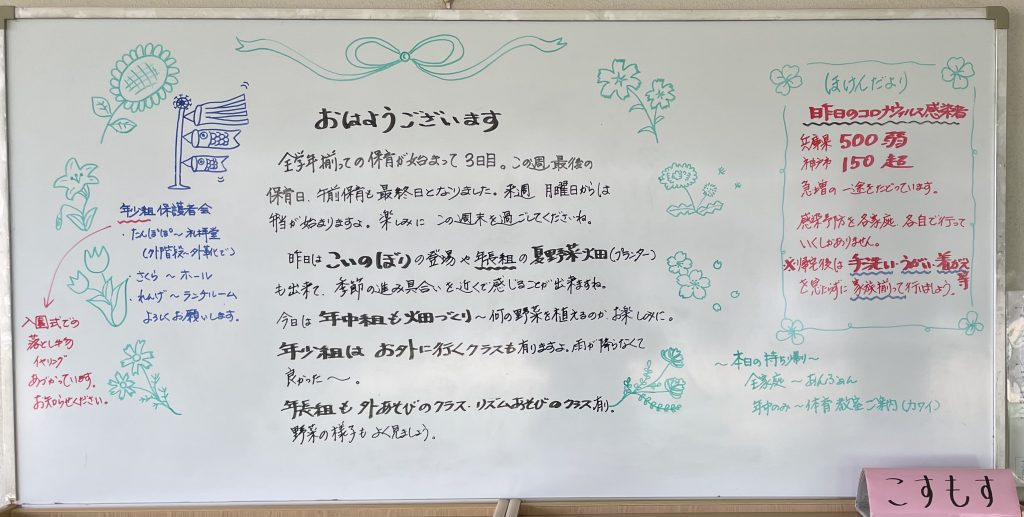 おはようございます
全学年揃っての保育が始まって3日目。この週最後の
保育日、午前保育も最終日となりました。来週 月曜日からは
弁当が始まりますよ。楽しみに この週末を過ごしてくださいね。
昨日は こいのぼりの登場や年長組の夏野菜畑(プランター)
も出来て、季節の進み具合いを近くで感じることが出来ますね。
今日は 年中組も畑づくり〜何の野菜を植えるのか、お楽しみに。
年少組は お外に行くクラスも有りますよ。雨が降らなくて
良かった〜。
年長組も 外あそびのクラス・リズムあそびのクラス有り。
野菜の様子もよく見ましょう。
年少組 保護者会
・たんぽぽ〜礼拝堂
(外階段〜外靴で)
・さくら〜ホール
・れんげ〜ランチルーム
よろしくお願いします。
入園式での
落とし物
イヤリング
あづかっています。
お知らせください。
ほけんだより
昨日のコロナウィルス感染者
兵庫県 500弱
神戸市 150超
急増の一途をたどっています。
感染予防を各家庭、各自で行って
いくしかありません。
※帰宅後は 手洗い・うがい・着がえ等
を怠らずに 家族揃って行いましょう。
〜本日の持ち帰り〜
全家庭〜あんふぁん
年中のみ〜体育教室ご案内(カワイ)
こすもす